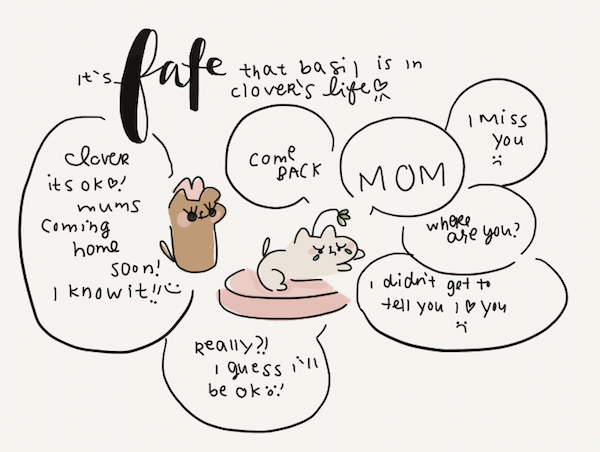 it's fate that basil is in
clover's life
Clover
its ok!
mums
coming
home
soon!
I know it!!
come
BACK
MOM
I Miss
you
where
are you?
I didn't get to
tell you I ♡ you
Really?!
I guess i'll
be ok!